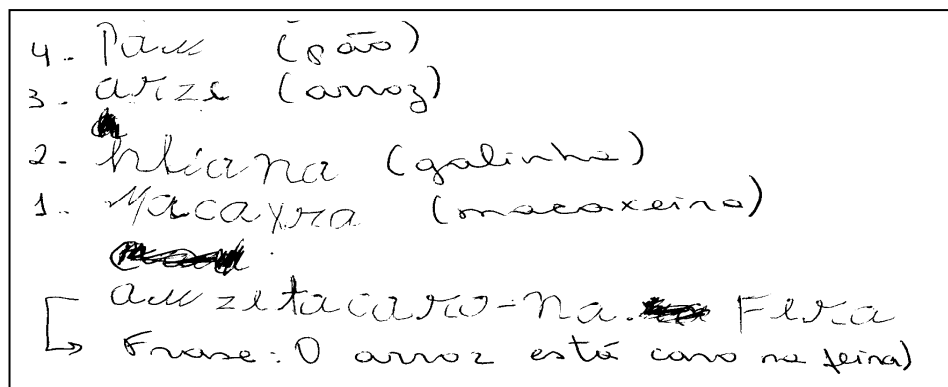 4. Pam (pão)
3. arze (arroz)
2. hliana (galinha)
1. Macayra (macaxeira)
au zetacaro-na. Fera
↳ Frase: O arroz está caro na feira)